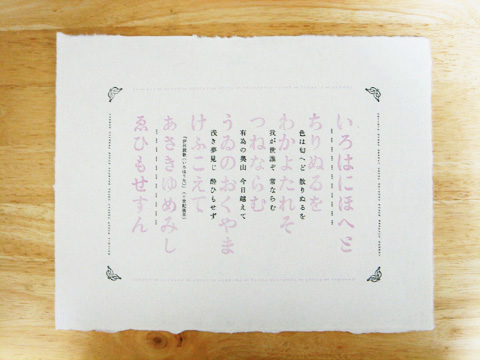 いろはにほへと
ちりぬるを
色は匂へど 散りぬるを
わかよたれそ
我が世誰ぞ 常ならむ
つねならむ
有為の奥山 今日越えて
うゐのおくやま
浅き夢見じ 酔ひもせず
けふこえて
あさきゆめみし
ゑひもせすん